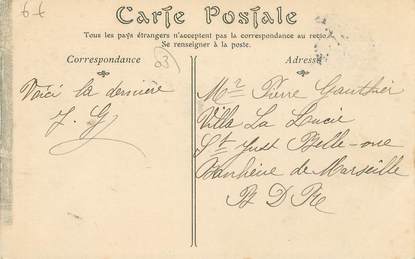 6-6
Carte Postale
Tous les pays étrangers n'acceptent pas la correspondance au recto.
Se renseigner à la poste.
Correspondance
03
Adresse
Voici la dernière
J. G
Mr Pierre Gauthier
Villa La Lucie
St Just Belle-vue
Banlieue de Marseille
B D R